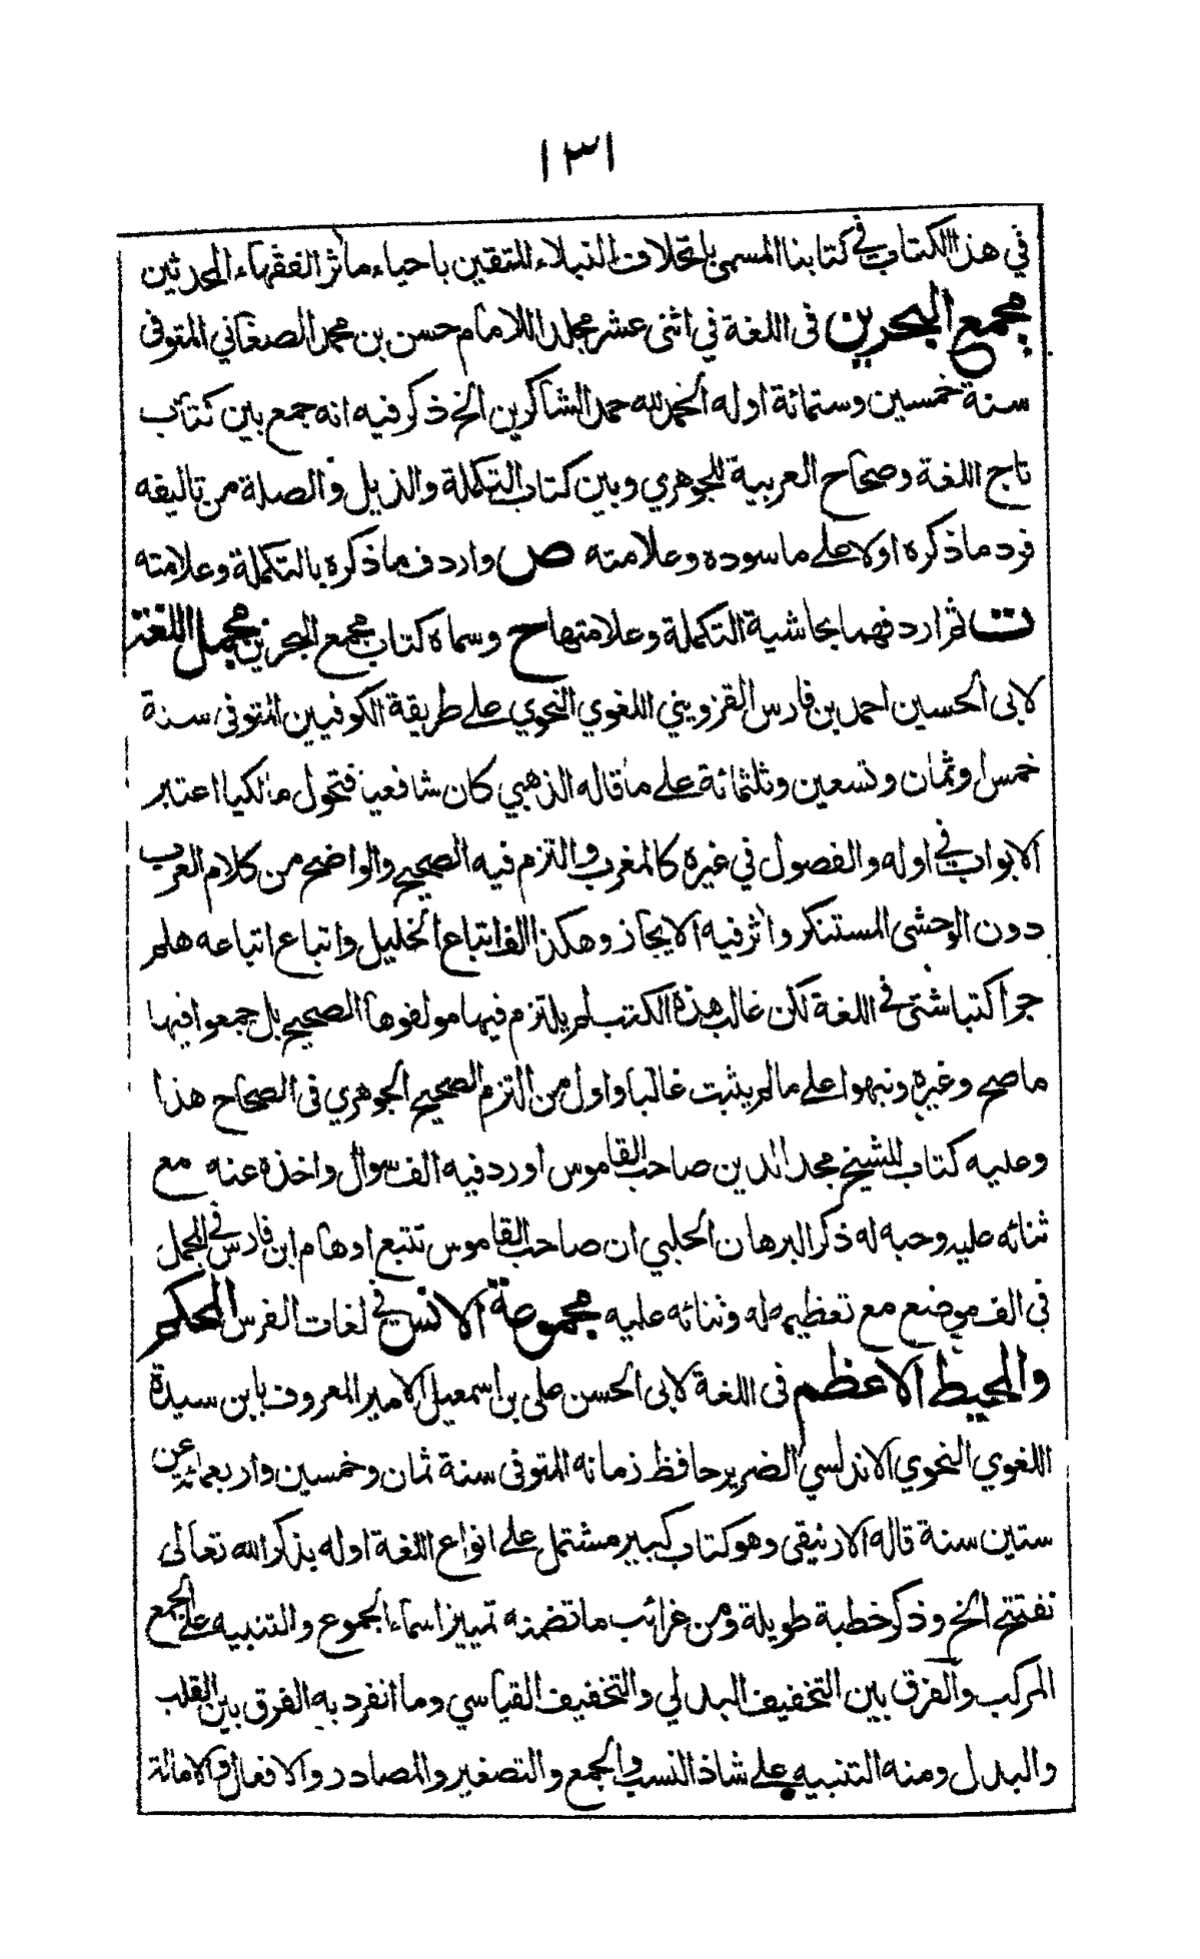 ١٣١
في هذا الكتاب في كتابنا المسمى باتحلاف النبلاء المتقين باحياء مأثر الفقهاء المحدثين
مجمع البحرين فى اللغة في اثنى عشر مجلدا للامام حسن بن محمد الصغاني المتوفى
سنة خمسين وستمائة اوله الحمد لله حمد الشاكرين الخ ذكر فيه انه جمع بين كتاب
تاج اللغة وصحاح العربية للجوهري وبين كتاب التكملة والذيل والصلة من تاليفه
فرد ما ذكره اولا على ما سوده وعلامته ص واردف ما ذكره بالتكملة وعلامته
ت ثم اردفهما بحاشية التكملة وعلامتها ح وسماه كتاب مجمع البحرين مجمل اللغة
لابى الحسين احمد بن فارس القزويني اللغوي النحوي على طريقة الكوفيين المتوفى سنة
خمس او ثمان وتسعين وثلثمائة على ما قاله الذهبي كان شافعيا فتحول مالكيا اعتبر
الابواب في اوله والفصول في غيره كالمغرب والتزم فيه الصحيح والواضح من كلام العرب
دون الوحشى المستنكر واثر فيه الايجاز وهكذا الف اتباع الخليل واتباع اتباعه هلم
جرا كتبا شتى فى اللغة لكن غالب هذه الكتب لم يلتزم فيها مولفوها الصحيح بل جمعوا فيها
ما صح وغيره ونبهوا على ما لم يثبت غالبا واول من التزم الصحيح الجوهري فى الصحاح هذا
وعليه كتاب للشيخ مجد الدين صاحب القاموس اورد فيه الف سوال واخذه عنه مع
ثنائه عليه وحبه له ذكر البرهان الحلبي ان صاحب القاموس تتبع اوهام ابن فارس في المجمل
فى الف موضع مع تعظيمه له وثنائه عليه مجموعة الانس في لغات الفرس المحكم
والمحيط الاعظم فى اللغة لابى الحسن على بن اسمعيل الامير المعروف بابن سيدة
اللغوي النحوي الاندلسي الضرير حافظ زمانه المتوفى سنة ثمان وخمسين واربعمائة عن
ستين سنة قاله الارنيقى وهو كتاب كبير مشتمل على انواع اللغة اوله بذكر الله تعالى
نفتتح الخ وذكر خطبة طويلة ومن غرائب ما تضمنه تمييز اسماء الجموع والتنبيه على الجمع
المركب والفرق بين التخفيف البدلي والتخفيف القياسي وما انفرد به الفرق بين القلب
والبدل ومنه التنبيه على شاذ النسب والجمع والتصغير والمصادر والافعال والامالة